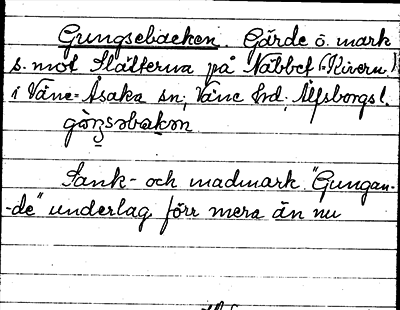 Gungsebacken. Gärde ö. mark
s. mot Slätterna på Näbbet (Kivern)
i Väne-Åsaka sn, Väne hd, Älfsborgs l.
Sank- och madmark "Gungan-
-de" underlag förr mera än nu